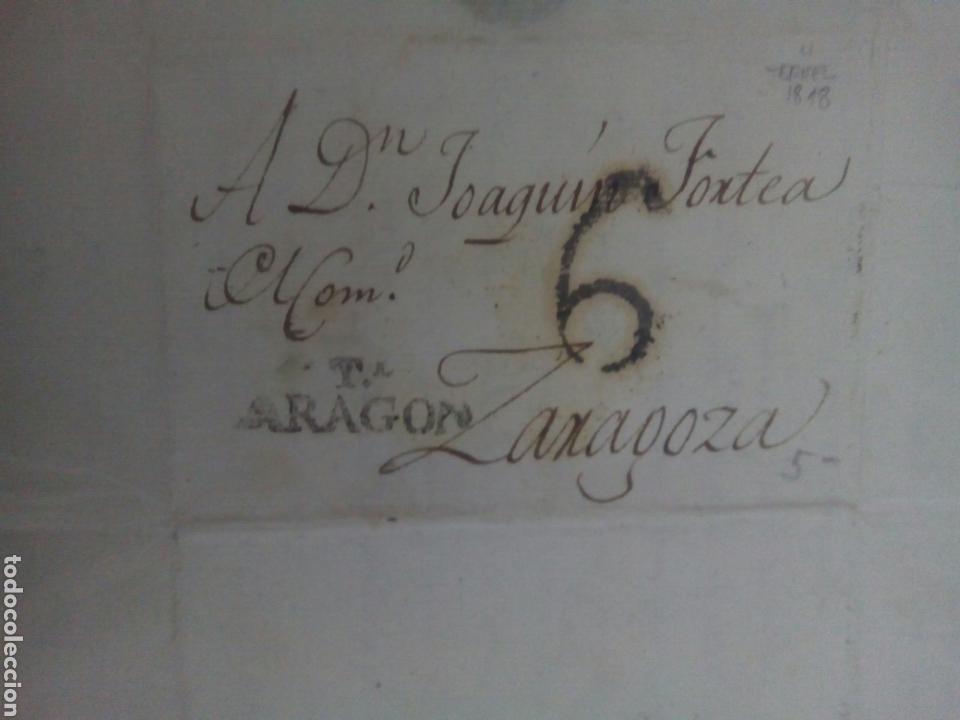 TERUEL
1818
A Dn. Joaquin Fortea
Com.o
6
T.L
ARAGON
Zaragoza
5-
todocoleccion